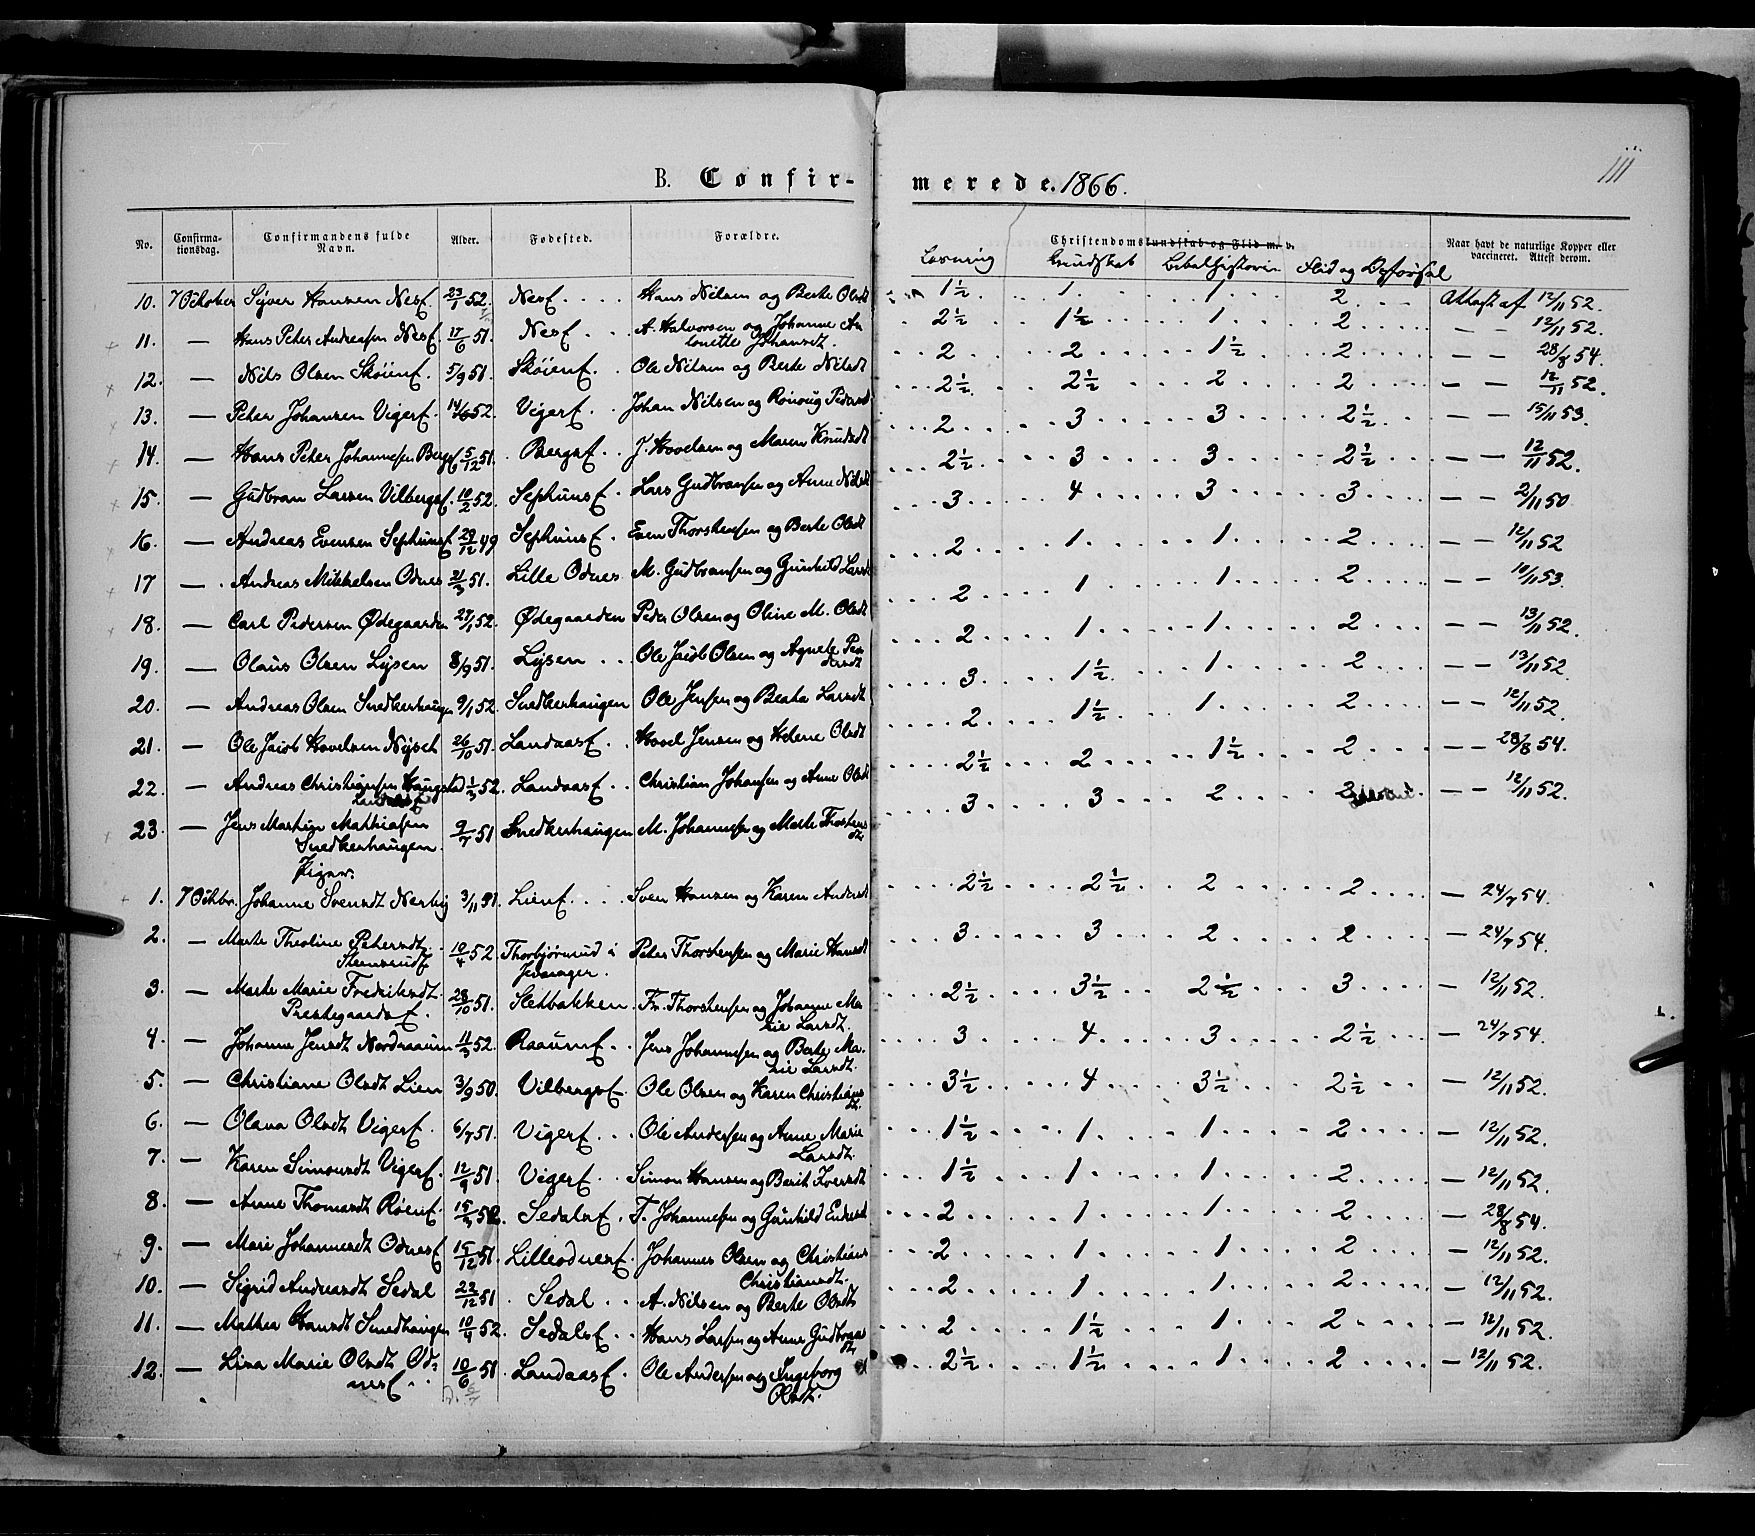 B. Confir-
merede. 1866.
111
No.
Confirma-
tionsdag.
Confirmandens fulde
Navn.
Alder.
Fødested.
Forældre.
Christendomskundskab og Flid m. v.
Læsning Kundskab Bibelhistorie Flid og Opførsel
Naar havt de naturlige Kopper eller
vaccineret. Attest derom.
10. 7 October Syver Hansen Nesf. 23/1 52. Nesf. Hans Nilsen og Berte Olsdt 1½ 1 1 2 Attest af 12/11 52.
11. — Hans Peter Andreasen Nesf. 17/6 51. Nesf. A. Halvorsen og Johanne An
tonette Johansdt. 2½ 1½ 1 2 — — 12/11 52.
12. — Nils Olsen Skøienf. 5/9 51. Skøienf. Ole Nilsen og Berte Nilsdt 2 2 1½ 2 — — 28/8 54.
13. — Peter Johansen Vigerf. 14/6 52. Vigerf. Johan Nilsen og Rønnug Pedersdt 2½ 2½ 2 2 — — 12/11 52.
14. — Hans Peter Johannesen Bergsf. 5/12 51. Bergsf. J. Hovelsen og Maren Knudsdt 2 3 3 2½ — — 15/11 53.
15. — Gudbran Larsen Vilbergsf. 10/2 52. Sephunsf. Lars Gudbransen og Anne Nilsdt 2½ 3 3 2½ — — 12/11 52.
16. — Andreas Evensen Sephunsf. 29/12 49 Sephunsf. Even Thorstensen og Berte Olsdt 3 4 3 3 — — 2/11 50
17 — Andreas Mikkelsen Odnes 21/3 51. Lille Odnes M. Gudbransen og Gunhild Larsdt 2 1 1 2 — — 12/11 52
18. — Carl Pedersen Ødegaarden 27/1 52. Ødegaarden Peder Olsen og Oline M. Olsdt 2 1 1 2 — — 10/11 53.
19. — Olaus Olsen Lysen 8/9 51. Lysen Ole Jacob Olsen og Agnete Pe
dersdt 2 1 1 2 — — 13/11 52.
20. — Andreas Olsen Snedkerhaugen 9/1 52. Snedkerhaugen Ole Jensen og Beata Larsdt 3 1½ 1 2 — — 13/11 52
21. — Ole Jacob Hovelsen Nyset 26/10 51. Landaasf. Hovel Jensen og Helene Olsdt 2 1½ 1 2 — — 12/11 52.
22. — Andreas Christiansen Haugstad 1/3 52. Landaasf. Christian Johansen og Anne Olsdt 2½ 2 1½ 2 — — 28/8 54.
23. — Jens Martin Mathiasen
Snedkerhaugen. 9/7 51 Snedkerhaugen M. Johannesen og Marte Thostens
dt. 3 3 2 3 — — 12/11 52.
Piger.
1. 7 Octbr. Johanne Svensdt Nerlig 3/11 51. Lienf. Sven Hansen og Karen Andersdt 2½ 2½ 2 2 — 24/7 54.
2. — Marte Theoline Petersdt.
Steensrudf. 10/4 52. Thorbjørnrud i
Jevnager. Peter Thorstensen og Marie Hansdt 3 3 2 2 — 24/7 54.
3. — Marte Marie Fredriksdt.
Prestegaardsf. 28/10 51. Sletbakken Fr. Thorstensen og Johanne Ma
rie Larsdt. 2½ 3½ 2½ 3 — 12/11 52.
4. — Johanne Jensdt Nordraaum 11/3 52. Raaumf. Jens Johannesen og Berte Ma.
rie Larsdt. 3 4 3 2½ — 24/7 54.
5. — Christiane Olsdt Lien 3/9 50. Vilbergsf. Ole Olsen og Karen Christians
dt. 3½ 4 3½ 2½ — 12/11 52.
6. — Olava Olsdt Vigerf. 6/7 51. Vigerf. Ole Andersen og Anne Marie
Larsdt. 1½ 1 1 2 — 12/11 52.
7. — Karen Simonsdt Vigerf. 12/9 51. Vigerf. Simon Hansen og Berit Iversdt 1½ 1 1 2 — 12/11 52.
8. — Anne Thomasdt Røenf. 15/3 52. Sedalsf. T. Johannesen og Gunhild Endresdt 2 1 1 2 — 28/8 54.
9. — Mari Johannesdt Odnesf. 15/12 51. Lilleodnesf. Johannes Olsen og Christiane
Christiansdt. 2 1 1 2 — 12/11 52.
10. — Sigrid Andreasdt Sedal 22/12 51. Sedal A. Nilsen og Berte Olsdt 2 1 1 2 — 12/11 52.
11. — Mathea Hansdt Smedhaugen 10/4 52. Sedalsf. Hans Larsen og Anne Gudbrans
dt. 2 1½ 1 2 — 12/11 52.
12. — Lina Marie Olsdt Od-
nesf. 10/6 51 Landaasf. Ole Andersen og Ingeborg
Olsdt. 2½ 1½ 1 2 — 12/11 52.